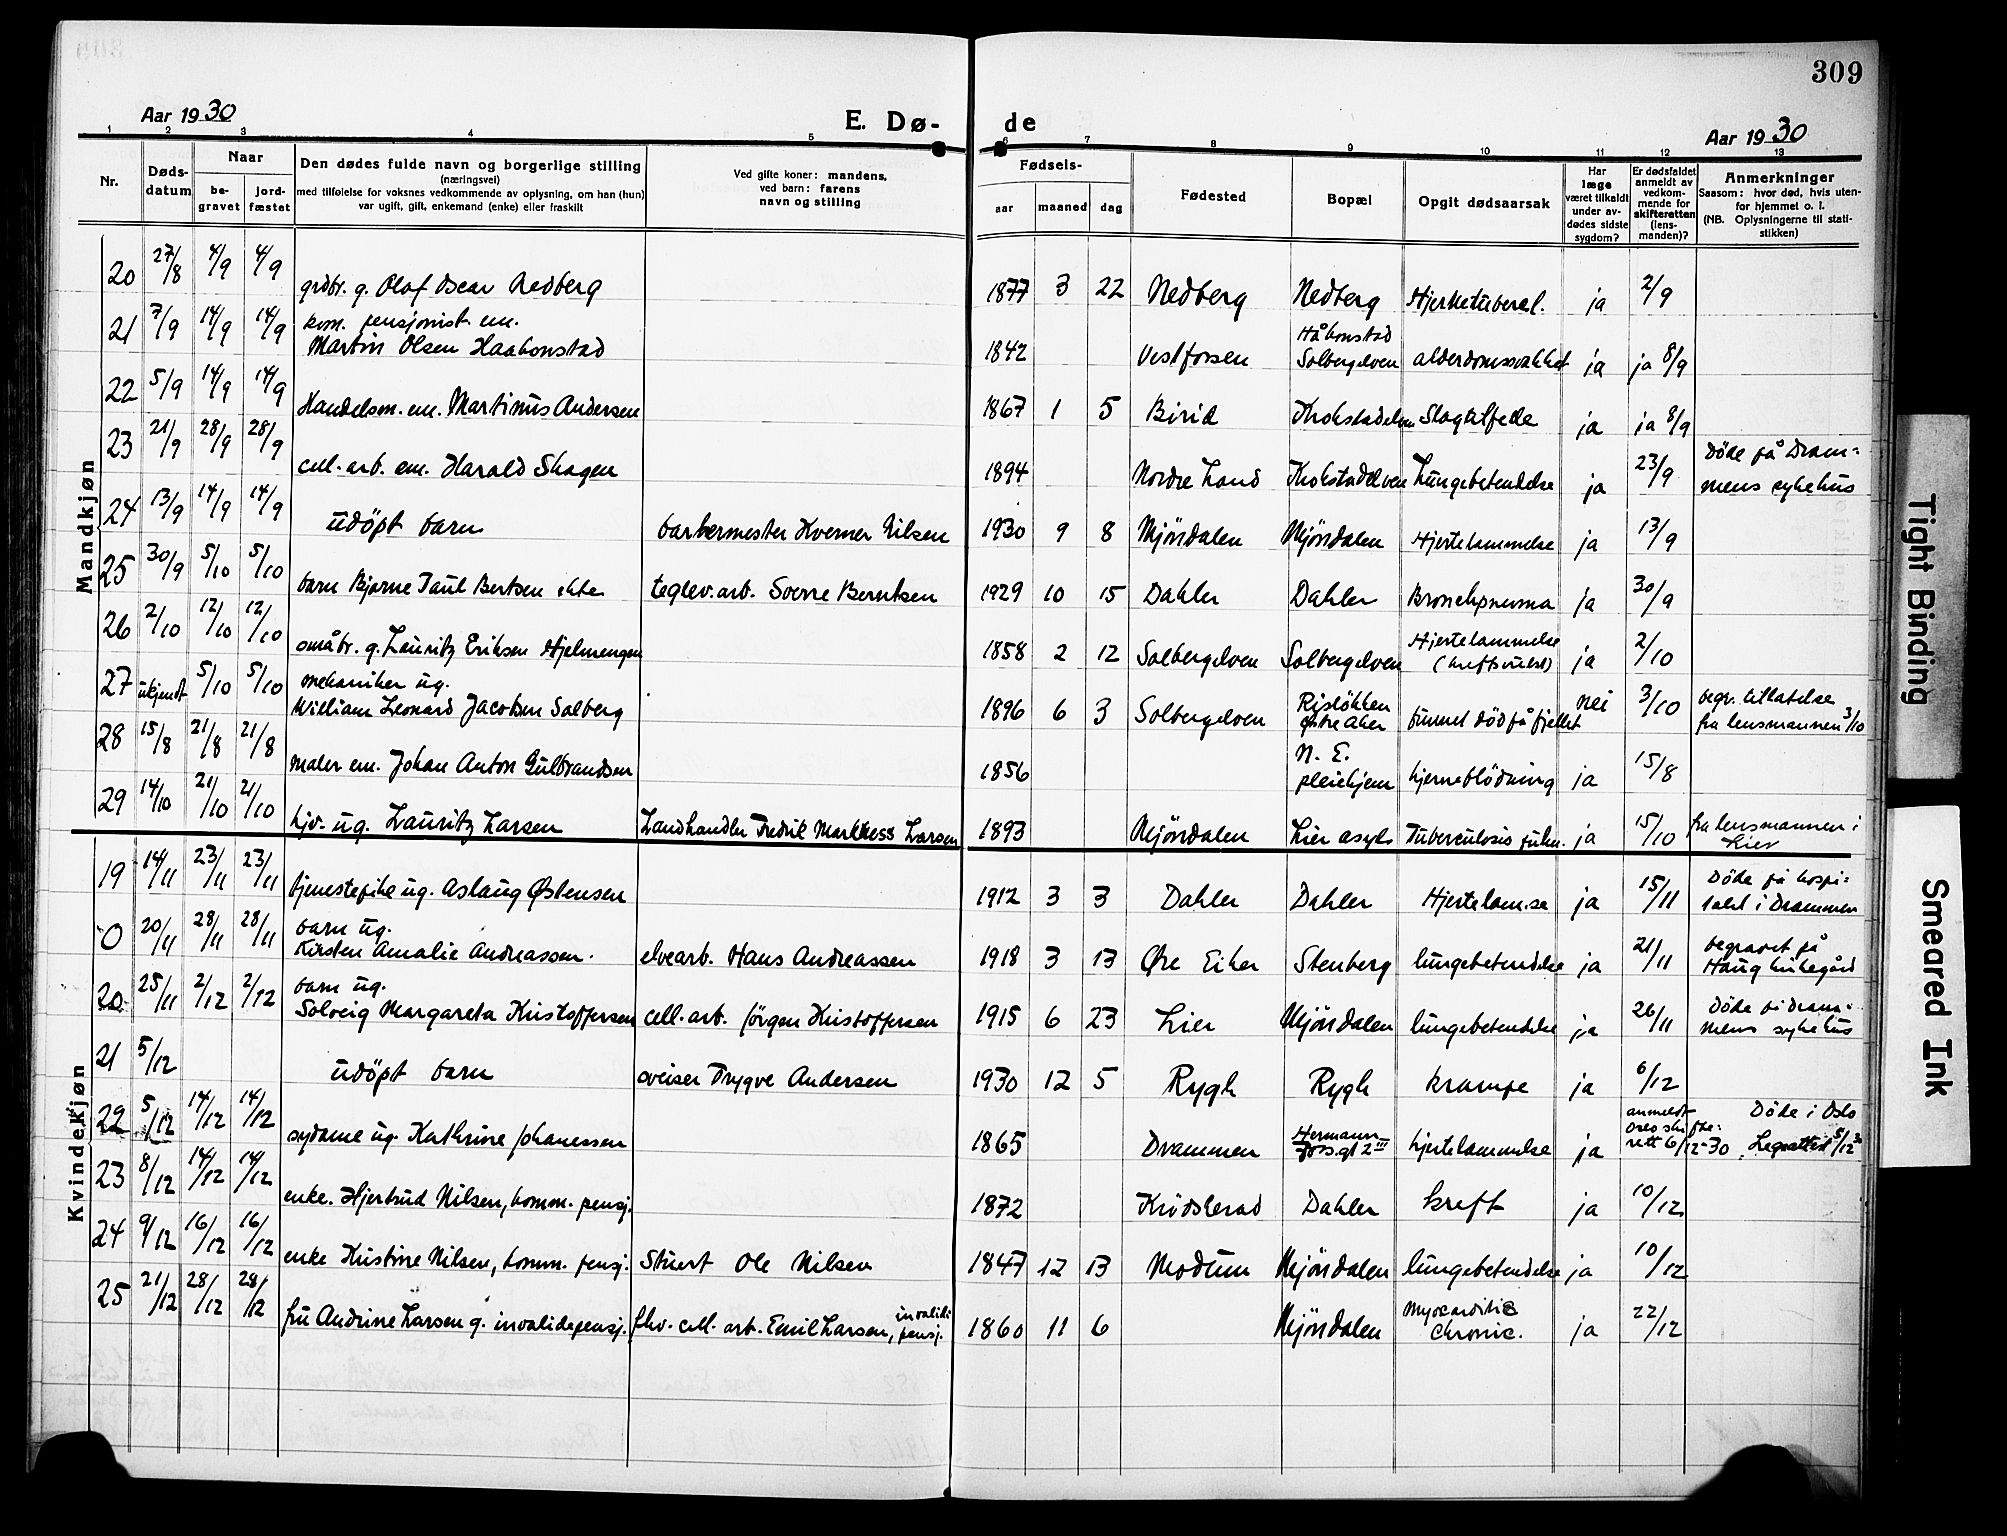 309
Aar 1930
E. Dø-
de
Aar 1930
1 2 3 4 5 6 7 8 9 10 11 12 13
Nr.
Døds-
datum
Naar
be-
gravet
jord-
fæstet
Den dødes fulde navn og borgerlige stilling
(næringsvei)
med tilføielse for voksnes vedkommende av oplysning, om han (hun)
var ugift, gift, enkemand (enke) eller fraskilt
Ved gifte koner: mandens,
ved barn: farens
navn og stilling
Fødsels-
aar maaned dag
Fødested
Bopæl
Opgit dødsaarsak
Har
læge
været tilkaldt
under av-
dødes sidste
sygdom?
Er dødsfaldet
anmeldt av
vedkom-
mende for
skifteretten
(lens-
manden)?
Anmerkninger
Saasom: hvor død, hvis uten-
for hjemmet o. l.
(NB. Oplysningerne til stati-
stikken)
Mandkjøn
20 27/8 4/9 4/9 grdbr. g. Olaf Oscar Nedberg 1877 3 22 Nedberg Nedberg Hjertetubercul. ja 2/9
21 7/9 14/9 14/9 kom. pensjonist. em.
Martin Olsen Haakonstad 1842 Vestfossen Håkonstad
Solbergelven alderdomssvakhet ja ja 8/9
22 5/9 14/9 14/9 Handelsm. em. Martinus Andersen 1867 1 5 Birid Krokstadelven Slagtilfelle ja ja 8/9
23 21/9 28/9 28/9 cell. arb. em. Harald Skagen 1894 Nordre Land Krokstadelven Lungebetendelse ja 23/9 Døde på Dram-
mens sykehus
24 13/9 14/9 14/9 udöpt barn barbermester Kverner Nilsen 1930 9 8 Mjöndalen Mjöndalen Hjertelammelse ja 13/9
25 30/9 5/10 5/10 barn Bjarne Paul Bertsen ekte teglev. arb. Sverre Berntsen 1929 10 15 Dahler Dahler Bronchpneuma ja 30/9
26 2/10 12/10 12/10 småbr. g. Lauritz Eriksen Hjelmengen 1858 2 12 Solbergelven Solbergelven Hjertelammelse
(kreftsvulst) ja 2/10
27 ukjendt 5/10 5/10 mekaniker ug.
William Leonard Jacobsen Solberg 1896 6 3 Solbergelven Risløkken
østre Aker funnet död på fjellet nei 3/10 begr. tillatelse
fra lensmannen 3/10
28 15/8 21/8 21/8 maler em. Johan Anton Gulbrandsen 1856 N. E.
pleiehjem hjerneblödning ja 15/8
29 14/10 21/10 21/10 hjv. ug. Lauritz Larsen Landhandler Fredrik Markkess Larsen 1893 Mjöndalen Lier asyl Tuberculosis pulm. ja 15/10 fra lensmannen i
Lier
Kvindekjøn
19 14/11 23/11 23/11 tjenestepike ug. Aslaug Østensen 1912 3 3 Dahler Dahler Hjertelam.se ja 15/11 Døde på hospi-
talet i Drammen
0 20/11 28/11 28/11 barn ug.
Kirsten Amalie Andreassen. elvearb. Hans Andreassen 1918 3 13 Øvre Eiker Stenberg lungebetendelse ja 21/11 begravet på
Haug kirkegård
20 25/11 2/12 2/12 barn ug.
Solveig Margareta Kristoffersen cell. arb. Jörgen Kristoffersen 1915 6 23 Lier Mjöndalen lungebetendelse ja 26/11 Døde på Dram-
mens sykehus
21 5/12 udöpt barn sveiser Trygve Andersen 1930 12 5 Rygh Rygh krampe ja 6/12
22 5/12 14/12 14/12 sydame ug. Kathrine Johanessen 1865 Drammen Hermann
Foss gt 2 III hjertelammelse ja anmeldt
Oslo skifte-
rett 6/12-30 Døde i Oslo
5/12 30
23 8/12 14/12 14/12 enke. Hjertrud Nilsen, komm. pensj. 1872 Krödsherad Dahler kreft ja 10/12
24 9/12 16/12 16/12 enke Kristine Nilsen, komm. pensj. Stuert Ole Nilsen 1847 12 13 Modum Mjöndalen lungebetendelse ja 10/12
25 21/12 28/12 28/12 fru Andrine Larsen g. invalidepensj. fhv. cell. arb. Emil Larsen, invalide
pensj. 1860 11 6 Mjöndalen Myocarditis
chronic. ja 22/12
Tight Binding
Smeared Ink